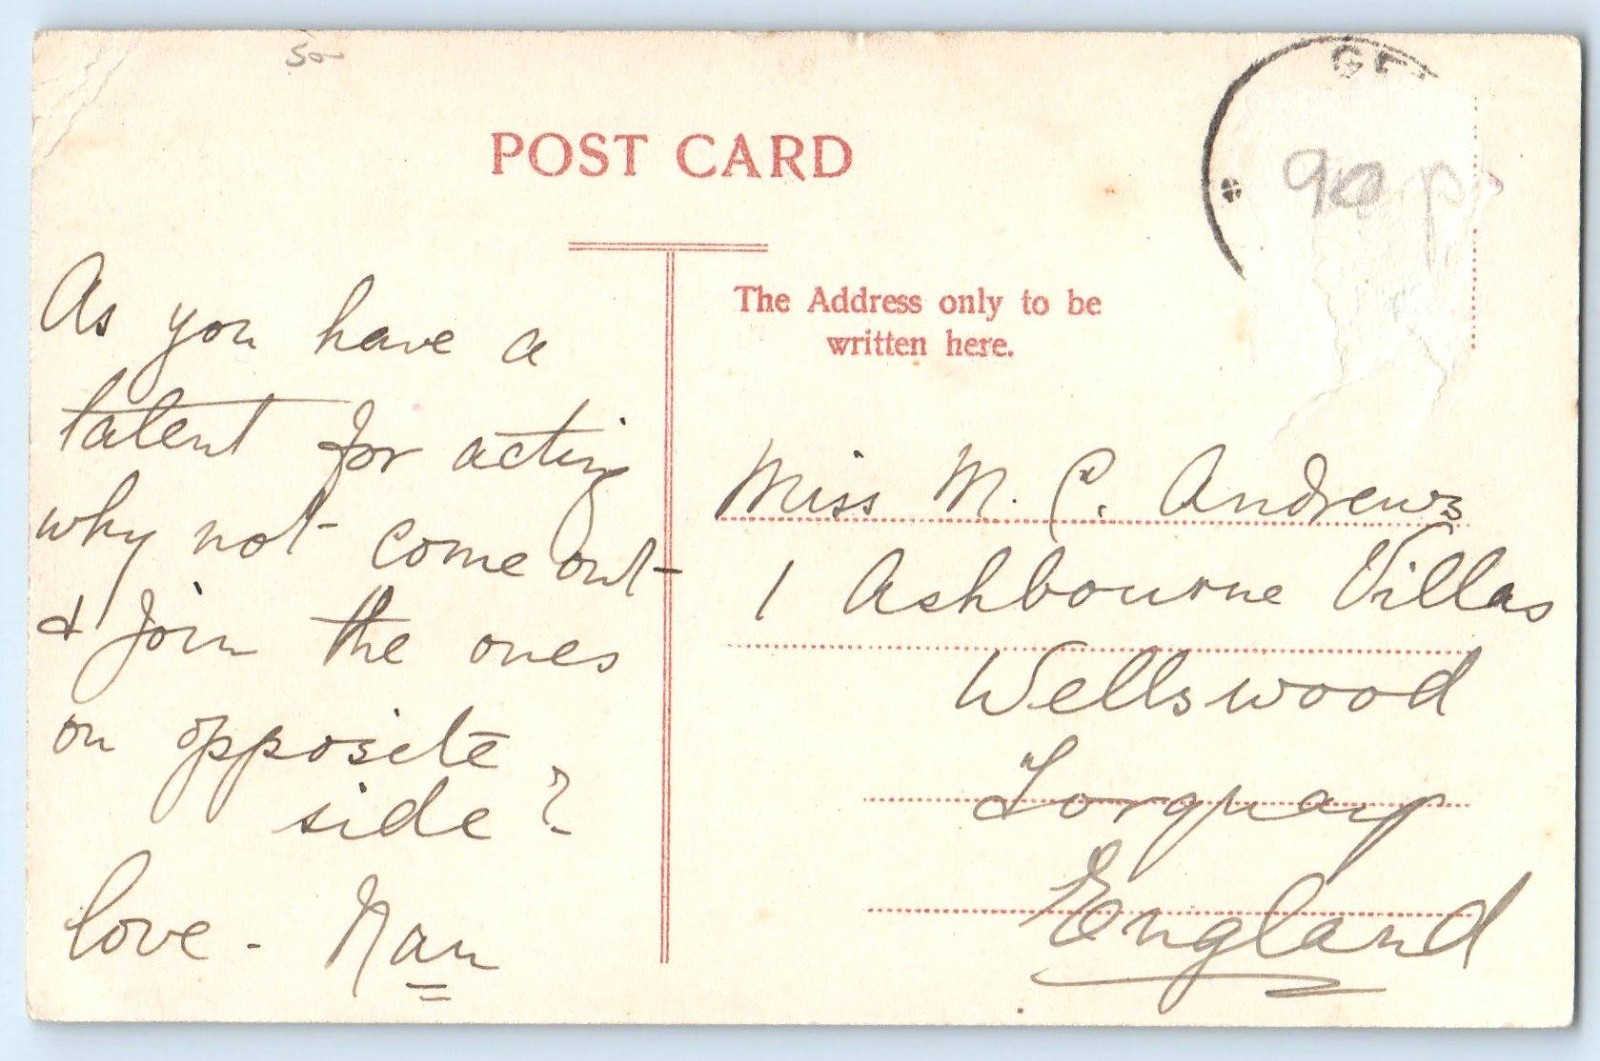 50
POST CARD
GE
The Address only to be
written here.
As you have a
talent for acting
why not come out
& join the ones
on opposite
side?
love - Nan
Miss M. C. Andrews
1 Ashbourne Villas
Wellswood
Torquay
England